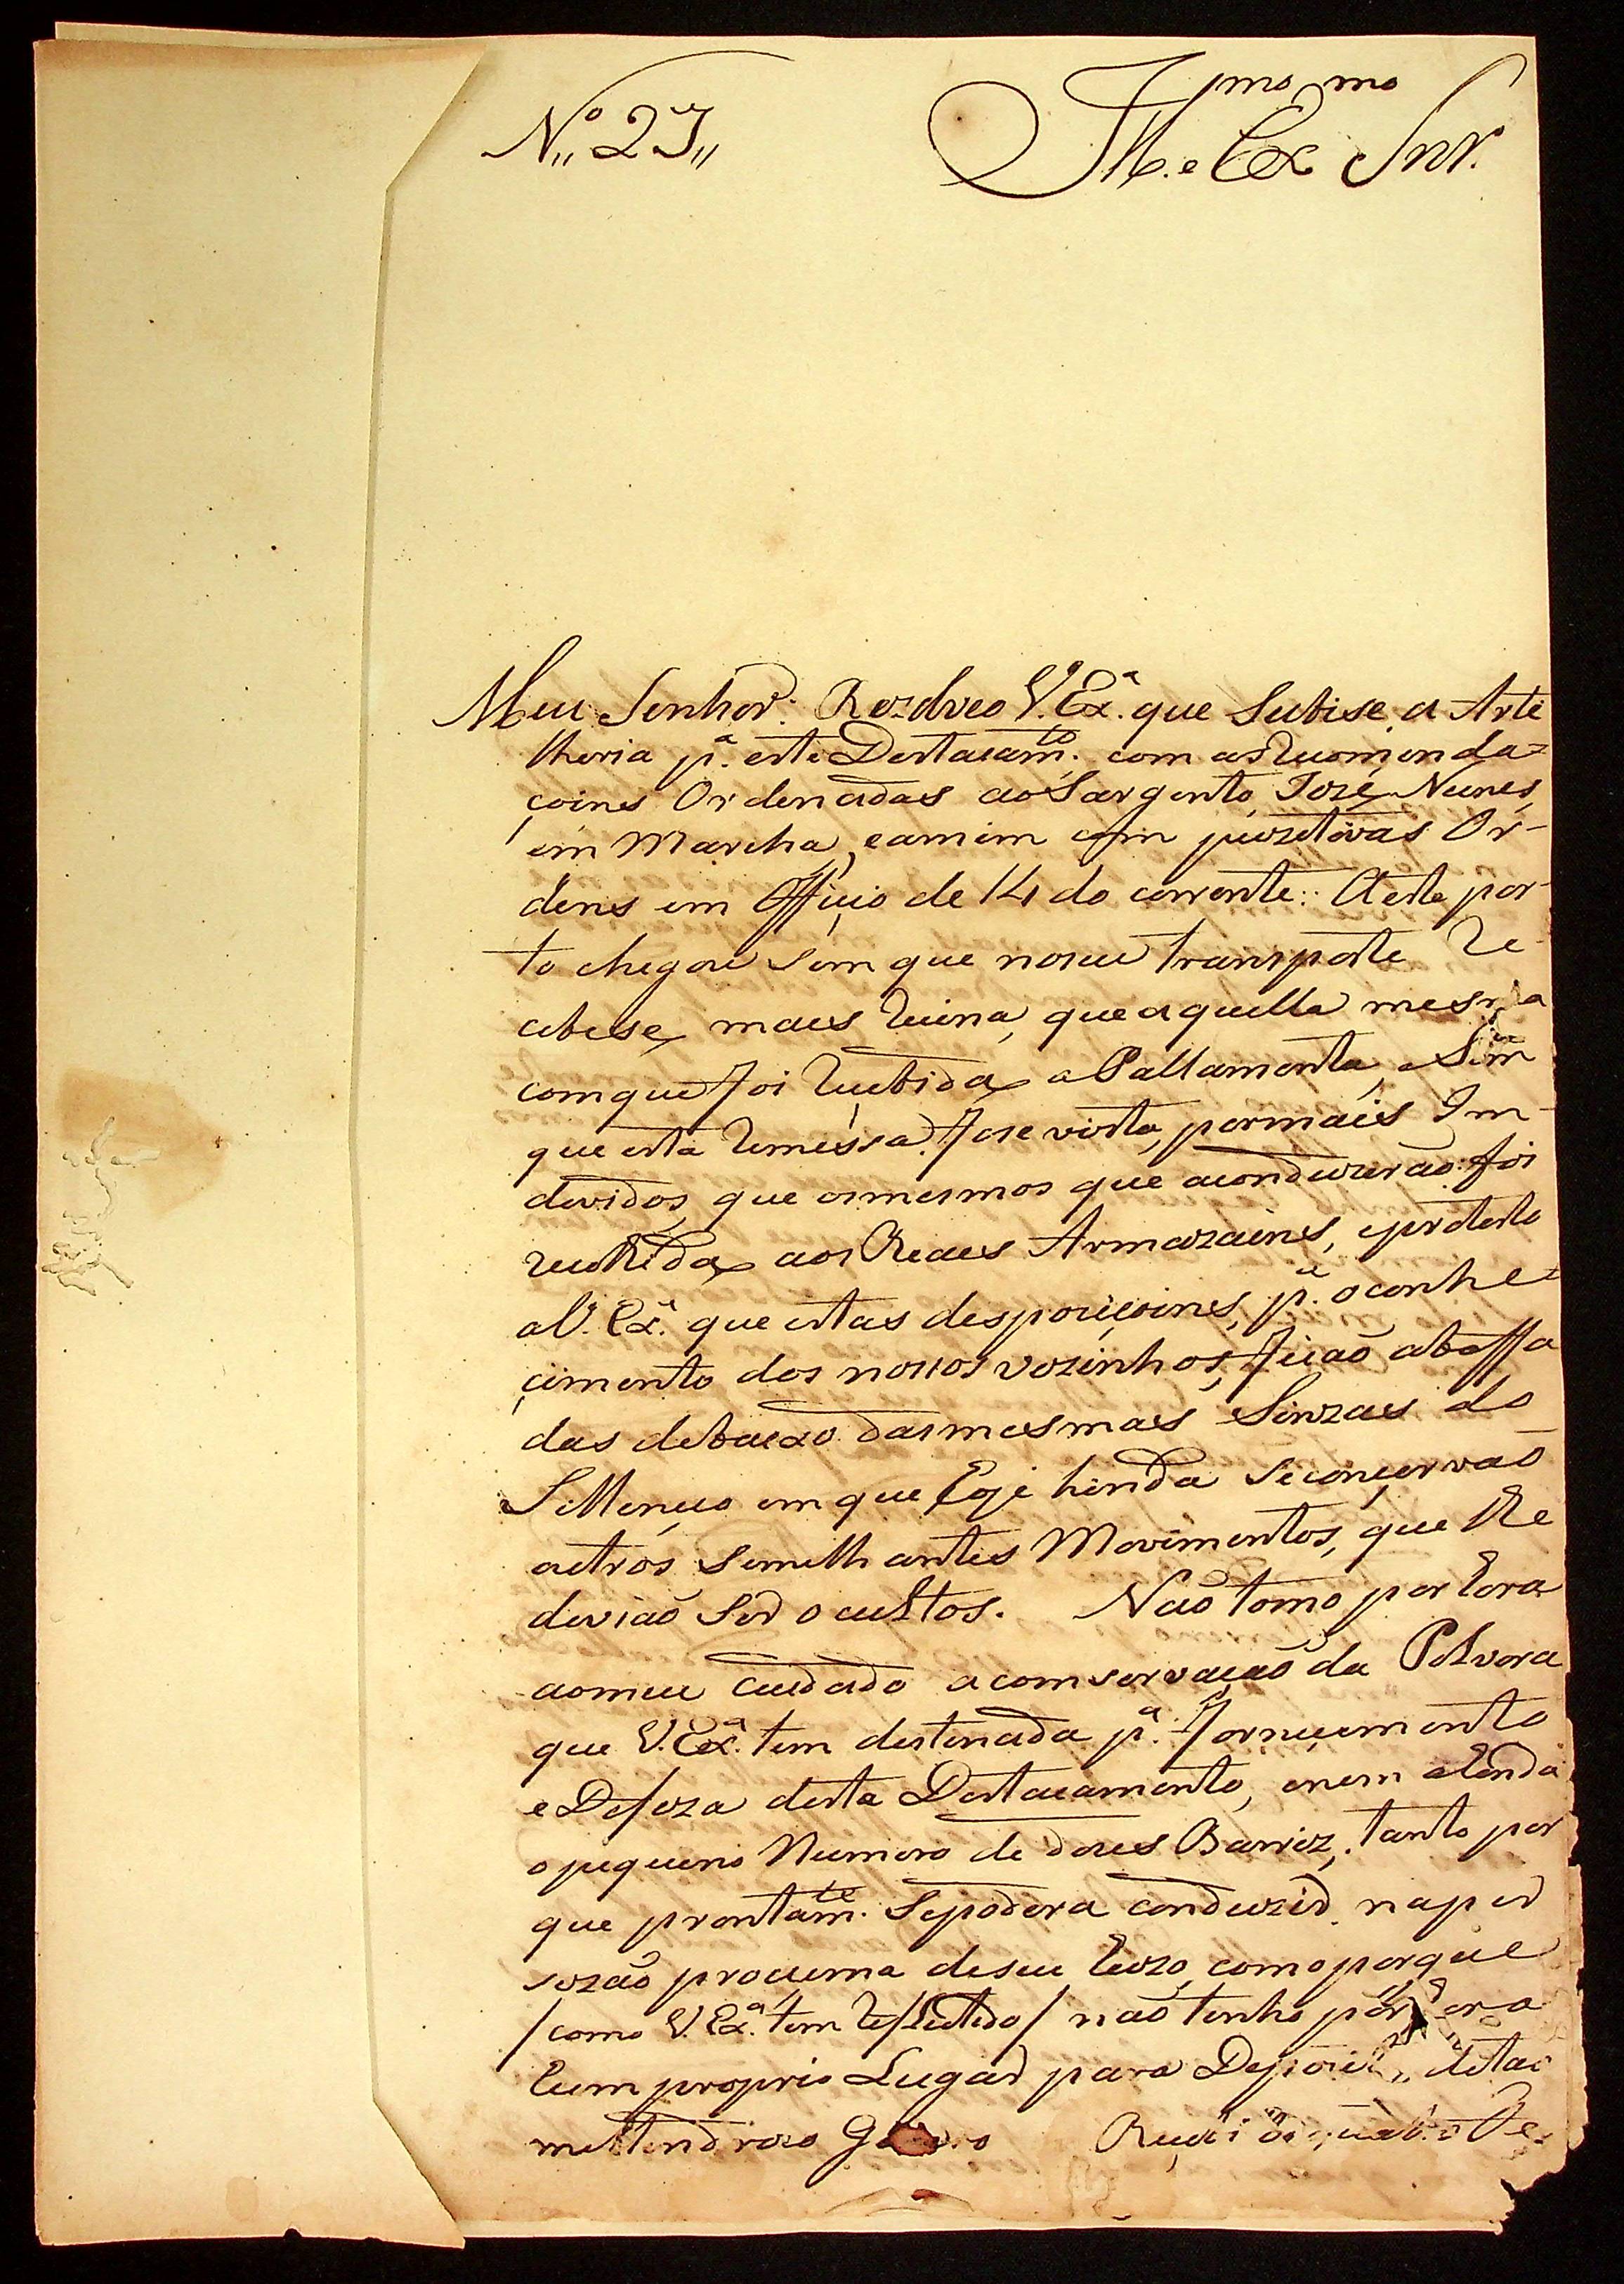 N.º 27,,
Ill.mo e Ex.mo Snr.
Meu Senhor: Rezolveo V. Ex.ª que Subise a Arte
lheria p.ª este Destacam.to com as recomenda=
çoines Ordenadas ao Sargento Jozé Nunes
em Marcha, e a mim com puzetivas Or-
dens em Officio de 14 do corrente:: A este por-
to chegou sem que no seu transporte re-
cebese mais ruina, que aquella mesma
com que foi recebida a Pallamenta, e Sem
que esta remessa fose vista, por mais Im-
devidos, que os mesmos que a conduzirão: foi
recolhida aos Reaes Armazains, e protesto
a V. Ex.ª que estas despoziçoines, p.ª o conhe-
çimento dos nosos vezinhos, ficão abaffa
das debaixo das mesmas Sinzas do
Sillençio em que hoje hinda se conçervão
outros Semelhantes Movimentos, que lhe
devião Ser ocultos. Não tomo por hora
ao meu cuidado a comservação da Polvora
que V. Ex.ª tem destenada p.ª forneçemento
e Defeza deste Destacamento, e nem ahinda
o pequeno Numero de doies Barriz, tanto por
que prontam.te Se podera conduzir na pos
sezão procuema de seu huzo, como porque
/como V. Ex.ª tem reflectido/ não tenho por hora
hum proprio Lugar para Depozito de tão
mellendrozo Genero